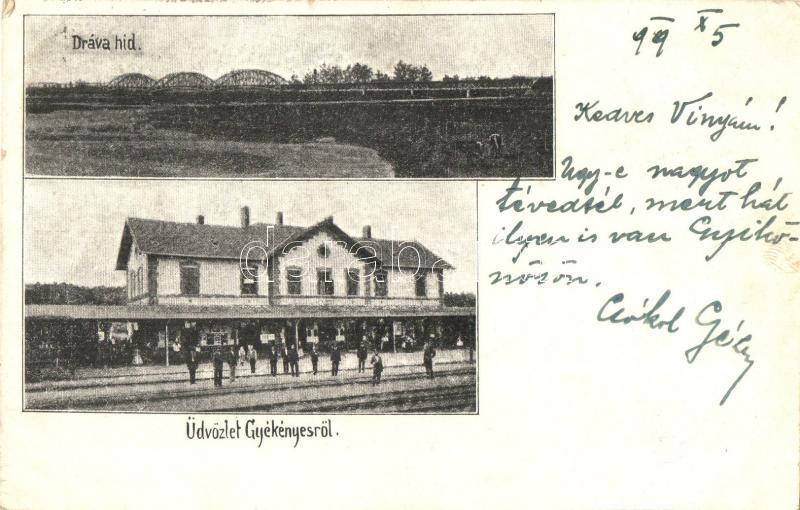 Dráva hid.
99 X/5
Kedves Vinyám!
Ugy-e nagyot
tévedtél, mert hát
ilyen is van Gyékényesen.
Csókol Géza
darabanth
Üdvözlet Gyékényesről.